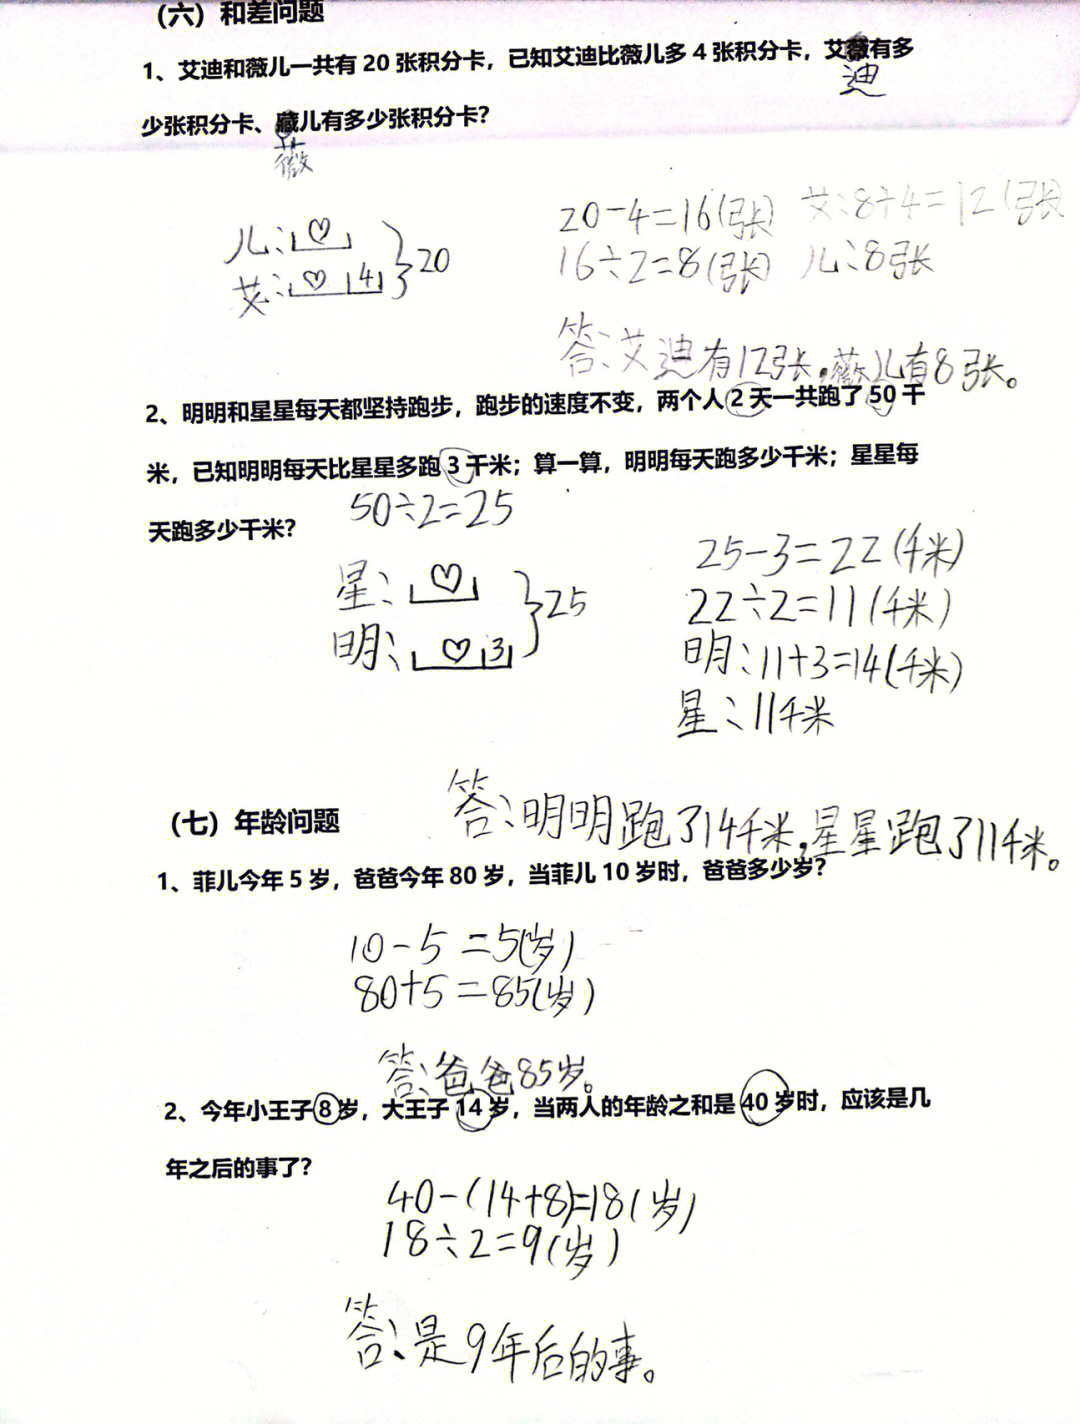 （六）和差问题
1、艾迪和薇儿一共有 20 张积分卡，已知艾迪比薇儿多 4 张积分卡，艾薇有多
迪
少张积分卡、藏儿有多少张积分卡？
薇
儿：♡
艾：♡ 4
20
20-4=16(张)
16÷2=8(张)
艾：8+4=12(张)
儿：8张
答：艾迪有12张，薇儿有8张。
2、明明和星星每天都坚持跑步，跑步的速度不变，两个人 2 天一共跑了 50 千
米，已知明明每天比星星多跑 3 千米；算一算，明明每天跑多少千米；星星每
天跑多少千米？
50÷2=25
星：♡
明：♡ 3
25
25-3=22(千米)
22÷2=11(千米)
明：11+3=14(千米)
星：11千米
答：明明跑了14千米，星星跑了11千米。
（七）年龄问题
1、菲儿今年 5 岁，爸爸今年 80 岁，当菲儿 10 岁时，爸爸多少岁？
10-5=5(岁)
80+5=85(岁)
答：爸爸85岁。
2、今年小王子 8 岁，大王子 14 岁，当两人的年龄之和是 40 岁时，应该是几
年之后的事了？
40-(14+8)=18(岁)
18÷2=9(岁)
答：是9年后的事。